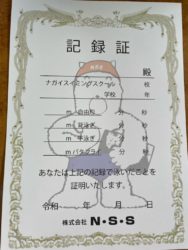 記録証
NSS
殿
ナガイスイミングスクール 校
学校 年
m 自由形 分 秒
m 背泳ぎ 分 秒
m 平泳ぎ 分 秒
m バタフライ 分 秒
あなたは上記の記録で泳いだことを
証明いたします。
令和 年 月 日
株式会社 N・S・S